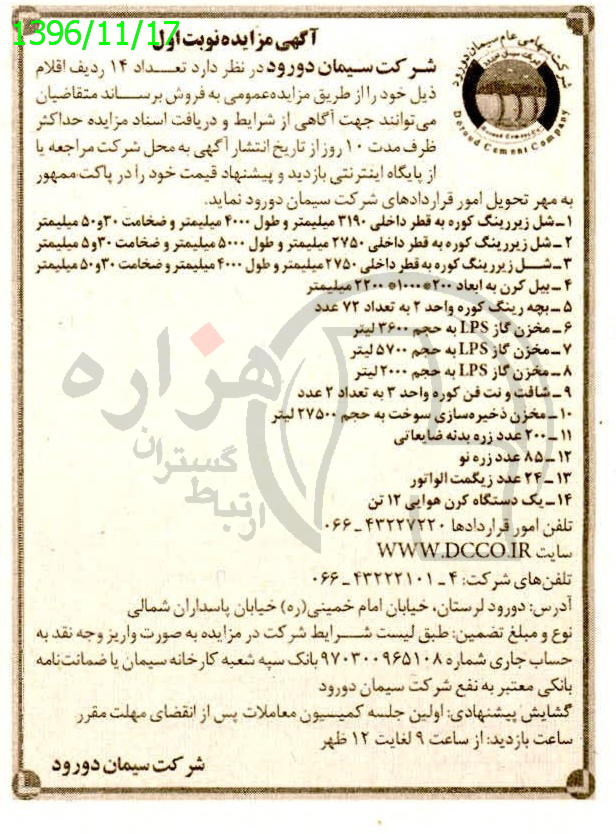 1396/11/17
آگهی مزایده نوبت اول
شرکت سهامی عام سیمان دورود
Doroud Cement Company
شرکت سیمان دورود در نظر دارد تعـداد ۱۴ ردیف اقلام
ذیل خود را از طریق مزایده عمومی به فروش برساند متقاضیان
می‌توانند جهت آگاهی از شرایط و دریافت اسناد مزایده حداکثر
ظرف مدت ۱۰ روز از تاریخ انتشار آگهی به محل شرکت مراجعه یا
از پایگاه اینترنتی بازدید و پیشنهاد قیمت خود را در پاکت ممهور
به مهر تحویل امور قراردادهای شرکت سیمان دورود نماید.
۱ـ شل زیررینگ کوره به قطر داخلی ۳۱۹۰ میلیمتر و طول ۴۰۰۰ میلیمتر و ضخامت ۳۰و۵۰ میلیمتر
۲ـ شل زیررینگ کوره به قطر داخلی ۲۷۵۰ میلیمتر و طول ۵۰۰۰ میلیمتر و ضخامت ۳۰و۵ میلیمتر
۳ـ شـل زیررینگ کوره به قطر داخلی ۲۷۵۰ میلیمتر و طول ۴۰۰۰ میلیمتر و ضخامت ۳۰و۵۰ میلیمتر
۴ـ بیل کرن به ابعاد ۲۰۰*۱۰۰۰* ۲۲۰۰ میلیمتر
۵ـ بچه رینگ کوره واحد ۲ به تعداد ۷۲ عدد
۶ـ مخزن گاز LPS به حجم ۳۶۰۰ لیتر
۷ـ مخزن گاز LPS به حجم ۵۷۰۰ لیتر
۸ـ مخزن گاز LPS به حجم ۲۰۰۰ لیتر
۹ـ شافت و نت فن کوره واحد ۳ به تعداد ۲ عدد
۱۰ـ مخزن ذخیره‌سازی سوخت به حجم ۲۷۵۰۰ لیتر
۱۱ـ ۲۰۰ عدد زره بدنه ضایعاتی
۱۲ـ ۸۵ عدد زره نو
۱۳ـ ۲۴ عدد زیگمت الواتور
۱۴ـ یک دستگاه کرن هوایی ۱۲ تن
هزاره
گستران
ارتباط
تلفن امور قراردادها ۴۳۲۲۷۲۲۰ـ۰۶۶
سایت WWW.DCCO.IR
تلفن‌های شرکت: ۴ـ۴۳۲۲۲۱۰۱ـ۰۶۶
آدرس: دورود لرستان، خیابان امام خمینی(ره) خیابان پاسداران شمالی
نوع و مبلغ تضمین: طبق لیست شـرایط شرکت در مزایده به صورت واریز وجه نقد به
حساب جاری شماره ۹۷۰۳۰۰۹۶۵۱۰۸ بانک سپه شعبه کارخانه سیمان یا ضمانت‌نامه
بانکی معتبر به نفع شرکت سیمان دورود
گشایش پیشنهادی: اولین جلسه کمیسیون معاملات پس از انقضای مهلت مقرر
ساعت بازدید: از ساعت ۹ لغایت ۱۲ ظهر
شرکت سیمان دورود